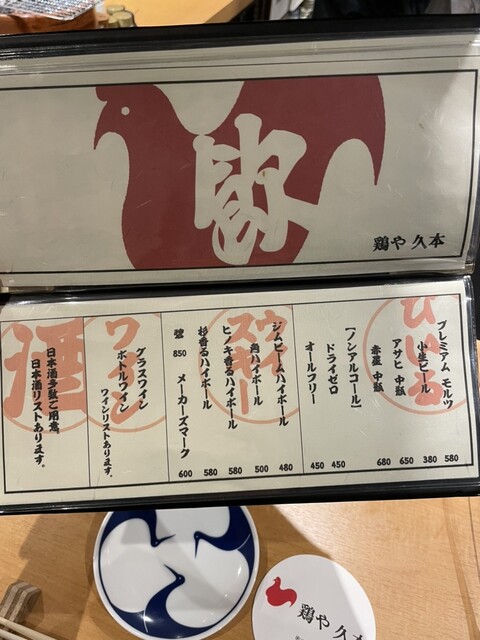 飲
鶏や 久本
びいる
プレミアム モルツ 580
小生ビール 380
アサヒ 中瓶 650
赤星 中瓶 680
[ノンアルコール]
ドライゼロ 450
オールフリー 450
ウイスキー
ジムビームハイボール 480
角ハイボール 500
ヒノキ香るハイボール 580
杉香るハイボール 580
碧 850 メーカーズマーク 600
ワイン
グラスワイン
ボトルワイン
ワインリストあります。
酒
日本酒多数ご用意。
日本酒リストあります。
鶏や 久本